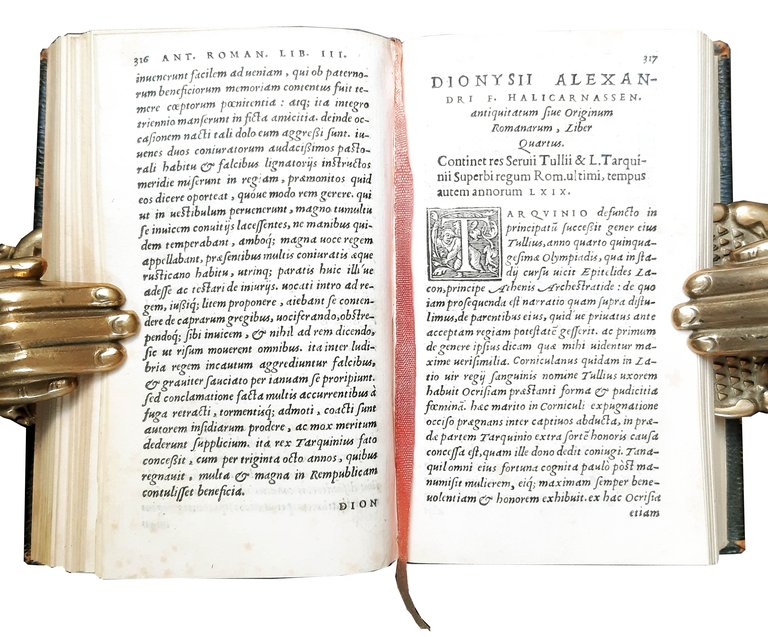 316 ANT. ROMAN. LIB. III.
inuenerunt facilem ad ueniam, qui ob paterno-
rum beneficiorum memoriam contentus fuit te-
mere cœptorum pœnitentia: atq; ita integro
triennio manserunt in ficta amicitia. deinde oc-
casionem nacti tali dolo eum aggreßi sunt. iu-
uenes duos coniuratorum audacißimos pasto-
rali habitu & falcibus lignatorijs instructos
meridie miserunt in regiam, præmonitos quid
eos dicere oporteat, quoue modo rem gerere. qui
ut in uestibulum peruenerunt, magno tumultu
se inuicem conuitijs lacessentes, ne manibus qui-
dem temperabant, amboq; magna uoce regem
appellabant, præsentibus multis coniuratis æque
rusticano habitu, utrinq; paratis huic illiue
adesse ac testari de iniurijs. uocati intro ad re-
gem, iußiq; litem proponere, aiebant se conten-
dere de caprarum gregibus, uociferando, obstre-
pendoq; sibi inuicem, & nihil ad rem dicendo,
sic ut risum mouerent omnibus. ita inter ludi-
bria regem incautum aggrediuntur falcibus,
& grauiter sauciato per ianuam se proripiunt.
sed conclamatione facta multis accurrentibus à
fuga retracti, tormentisq; admoti, coacti sunt
autorem insidiarum prodere, ac mox meritum
dederunt supplicium. ita rex Tarquinius fato
conceßit, cum per triginta octo annos, quibus
regnauit, multa & magna in Rempublicam
contulisset beneficia.
DION
317
DIONYSII ALEXAN-
DRI F. HALICARNASSEN.
antiquitatum siue Originum
Romanarum, Liber
Quartus.
Continet res Seruii Tullii & L. Tarqui-
nii Superbi regum Rom. ultimi, tempus
autem annorum LXIX.
TARQVINIO defuncto in
principatu succeßit gener eius
Tullius, anno quarto quinqua-
gesimæ Olympiadis, qua in sta-
dij cursu uicit Epitelides La-
con, principe Athenis Archestratide: de quo
iam prosequenda est narratio quam supra distu-
limus, de parentibus eius, quid ue priuatus ante
acceptam regiam potestatē gesserit. ac primum
de genere ipsius dicam quæ mihi uidentur ma-
xime uerisimilia. Corniculanus quidam in La-
tio uir regij sanguinis nomine Tullius uxorem
habuit Ocrisiam præstanti forma & pudicitia
fœminā. hæc marito in Corniculi expugnatione
occiso prægnans inter captiuos abducta, in præ-
dæ partem Tarquinio extra sortē honoris causa
concessa est, quam ille dono dedit coniugi. Tana-
quil omni eius fortuna cognita paulò pòst ma-
numisit mulierem, eiq; maximam semper bene-
uolentiam & honorem exhibuit. ex hac Ocrisia
etiam